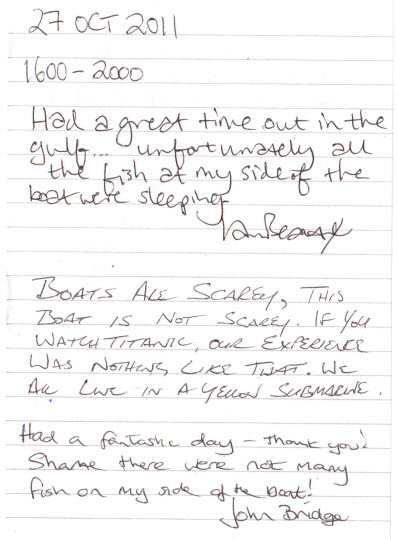 27 OCT 2011
1600-2000
Had a great time out in the
gulf... unfortunately all
the fish at my side of the
boat were sleeping
BOATS ARE SCAREY, THIS
BOAT IS NOT SCAREY. IF YOU
WATCH TITANIC, OUR EXPERIENCE
WAS NOTHING LIKE THAT. WE
ALL LIVE IN A YELLOW SUBMARINE.
Had a fantastic day - thank you!
Shame there were not many
fish on my side of the boat!
John Bridge